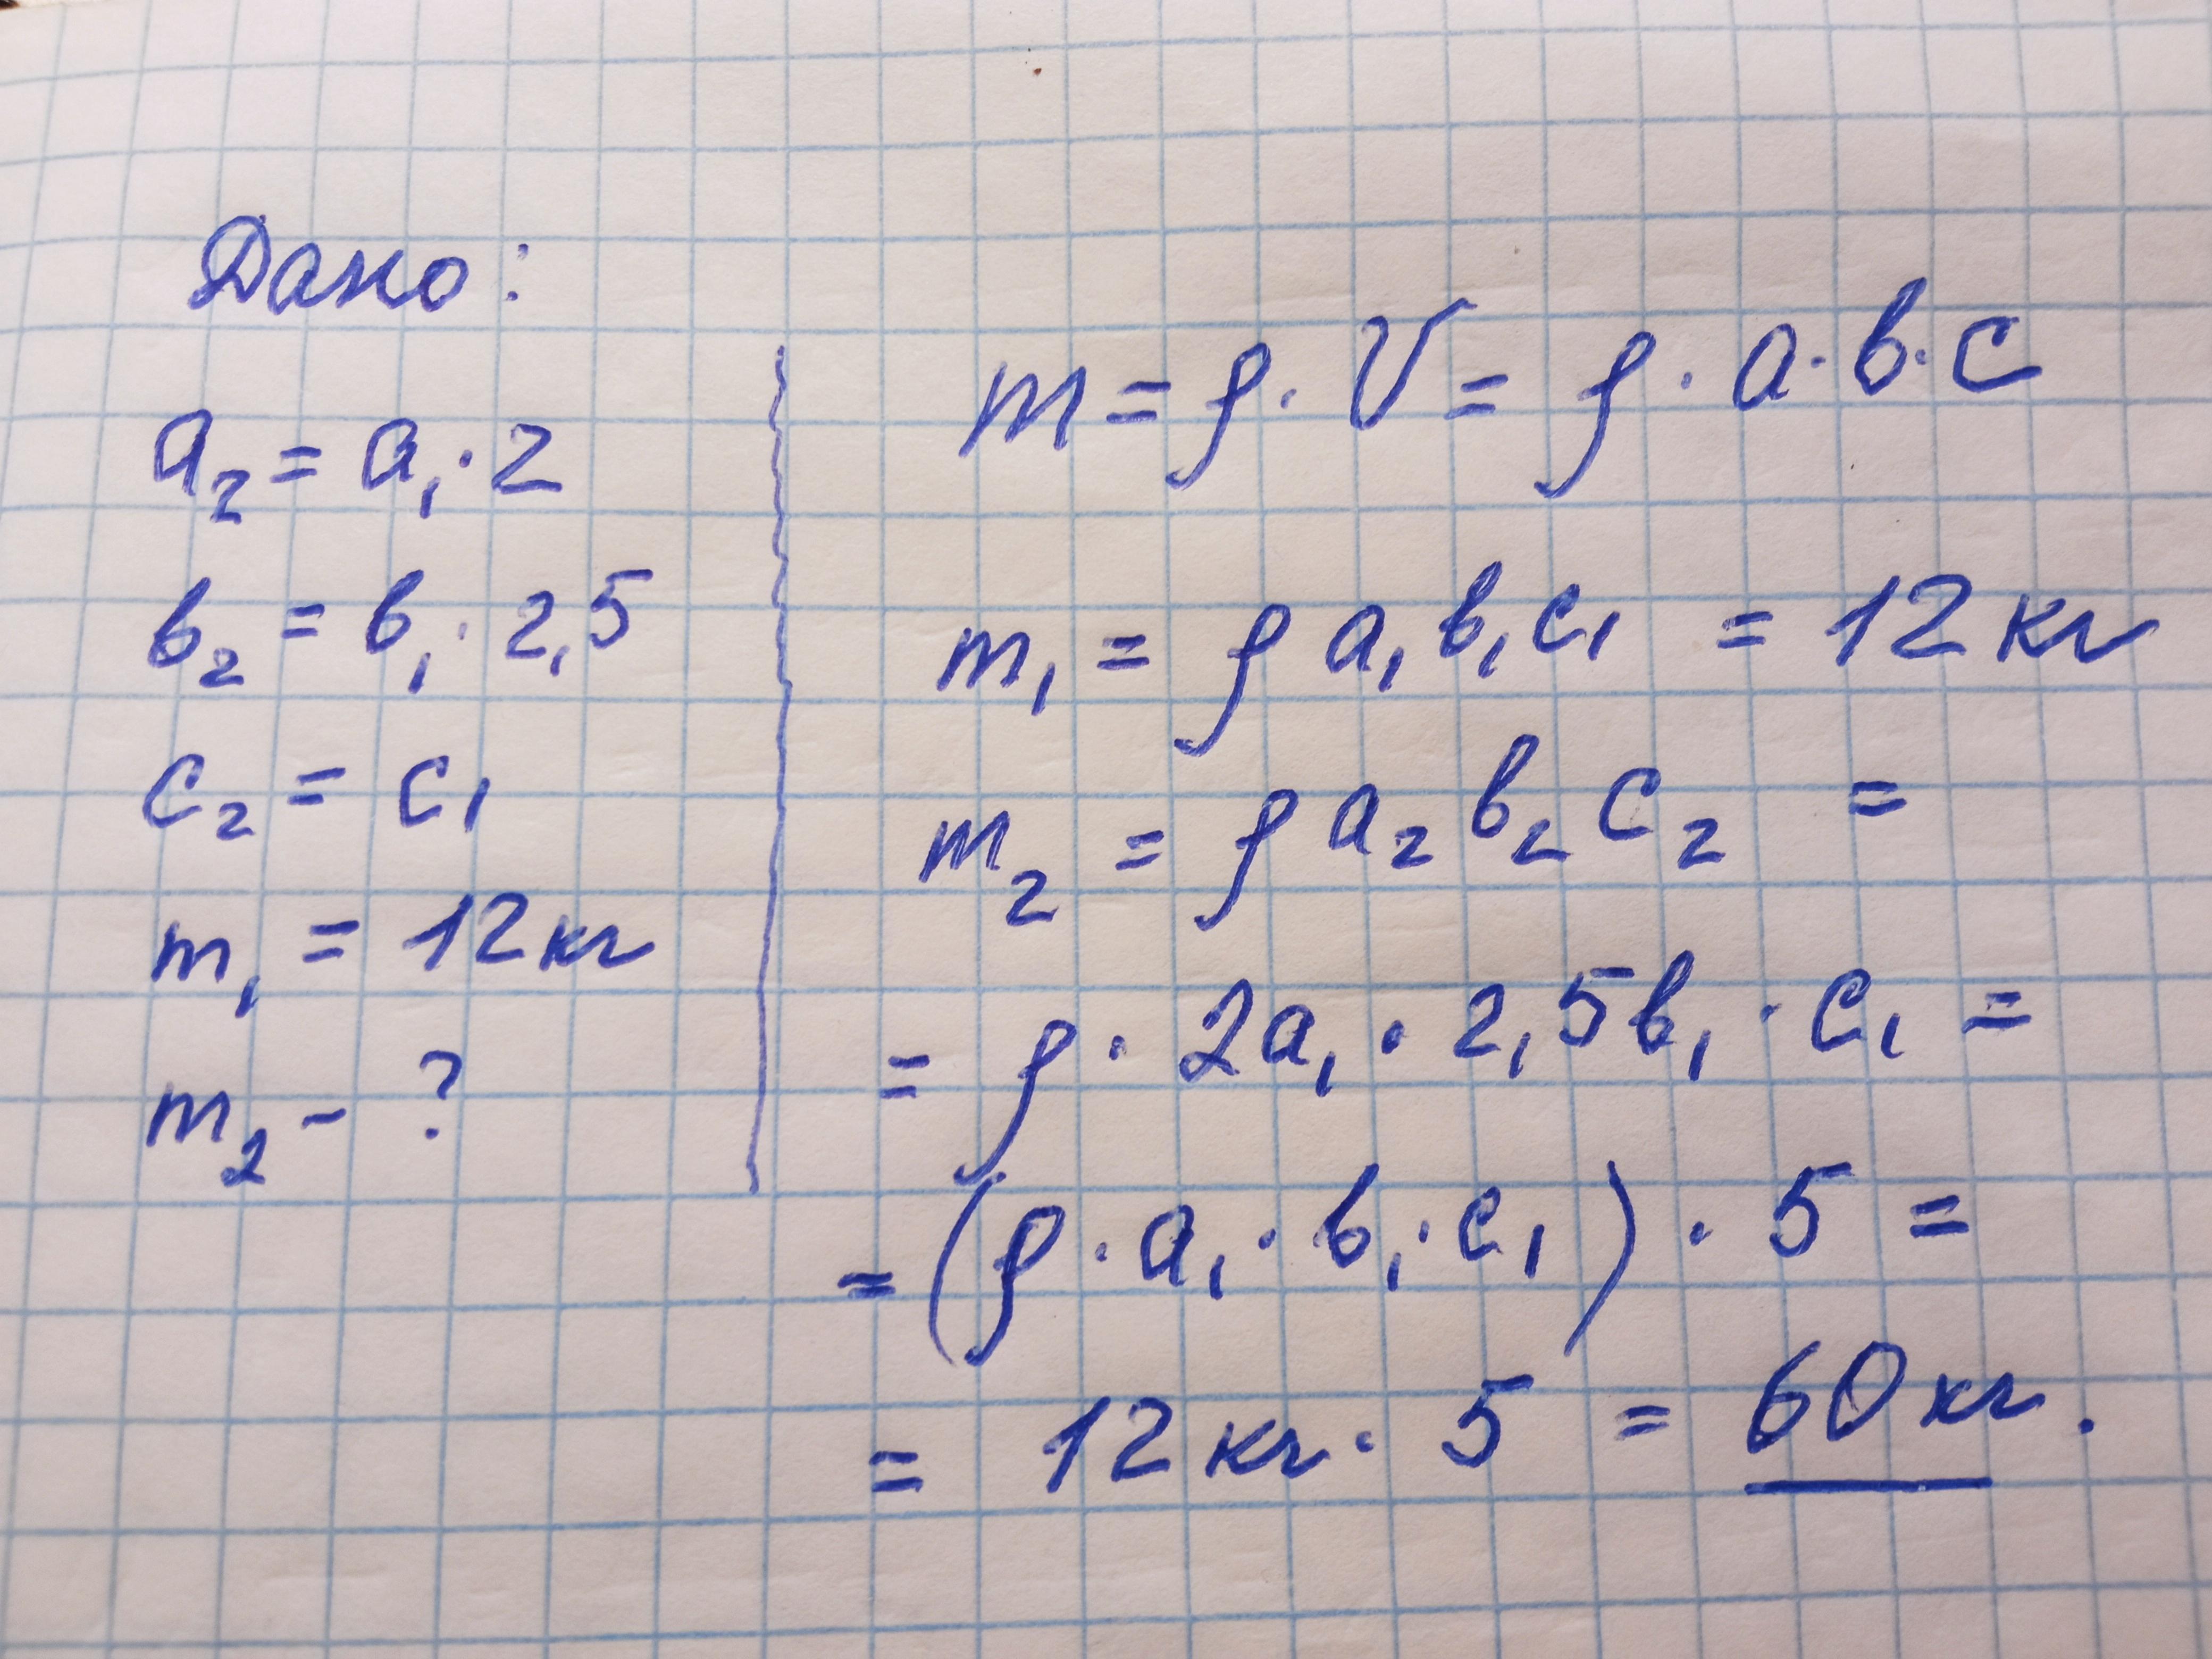 Дано:
a₂ = a₁ · 2
b₂ = b₁ · 2,5
c₂ = c₁
m₁ = 12 кг
m₂ - ?
m = ρ · V = ρ · a · b · c
m₁ = ρ a₁ b₁ c₁ = 12 кг
m₂ = ρ a₂ b₂ c₂ =
= ρ · 2a₁ · 2,5b₁ · c₁ =
= (ρ · a₁ · b₁ · c₁) · 5 =
= 12 кг · 5 = 60 кг.